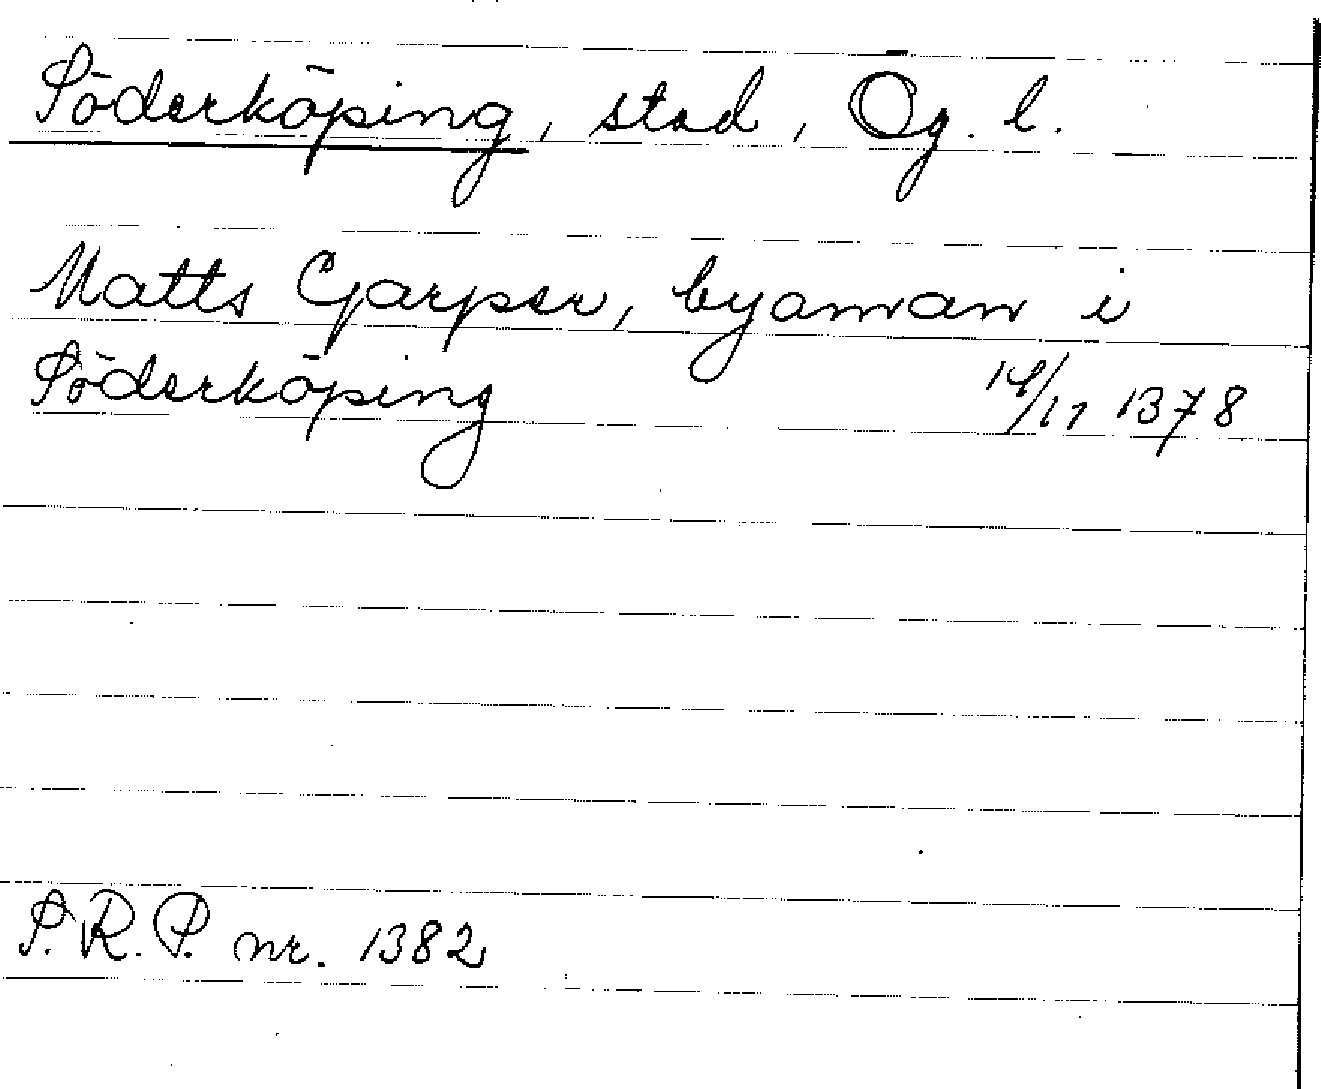 Söderköping, stad, Ög. l.
Matts Garper, byaman i
Söderköping 14/11 1378
S.R.P. nr. 1382